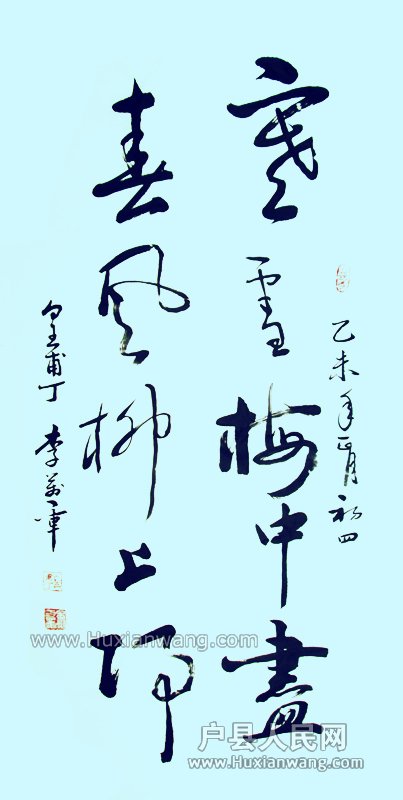 乙未年正月初四
寒雪梅中盡
春風柳上歸
皇甫丁 李萬軍
www.Huxianwang.com
户县人民网
www.Huxianwang.com